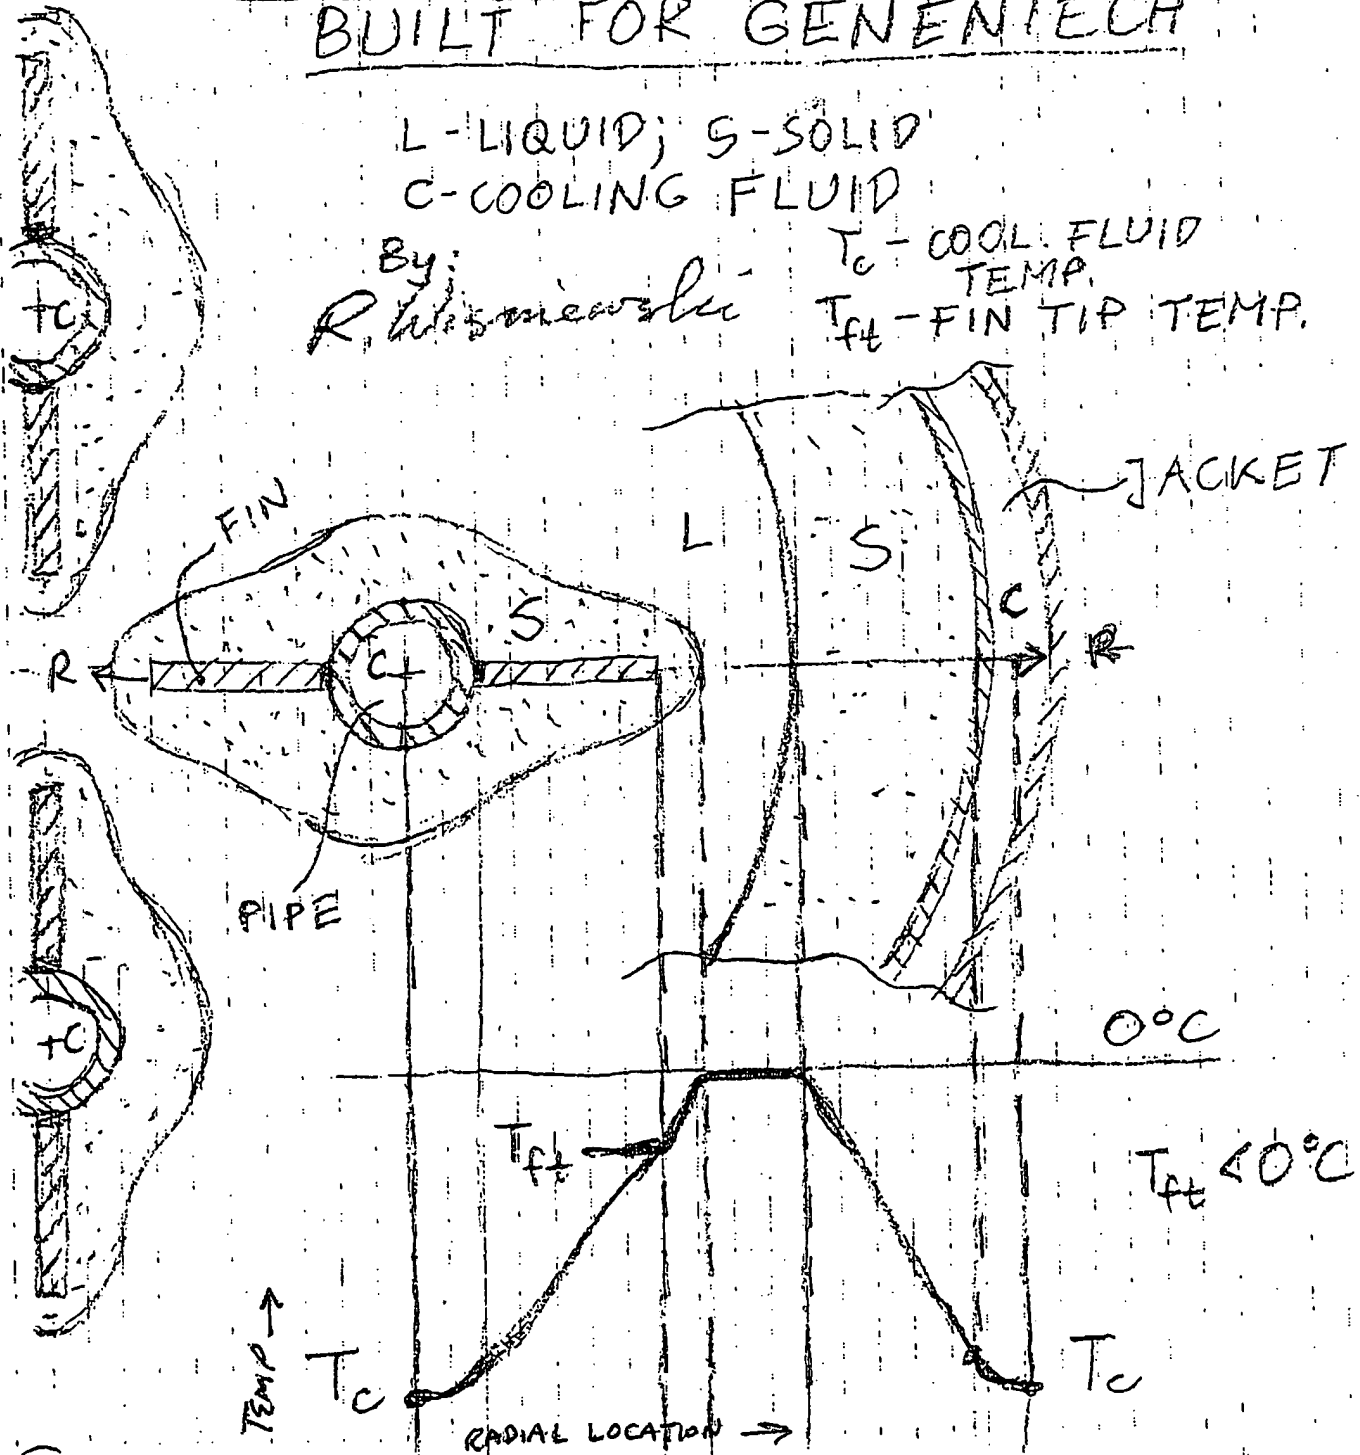 BUILT FOR GENENTECH
L-LIQUID; S-SOLID
C-COOLING FLUID
By:
R. Wisniewski
Tc - COOL. FLUID
TEMP.
Tft - FIN TIP TEMP.
+C
JACKET
FIN
L
S
S
C
R
C+
R
PIPE
+C
0°C
Tft
Tft <0°C
TEMP →
Tc
Tc
RADIAL LOCATION →